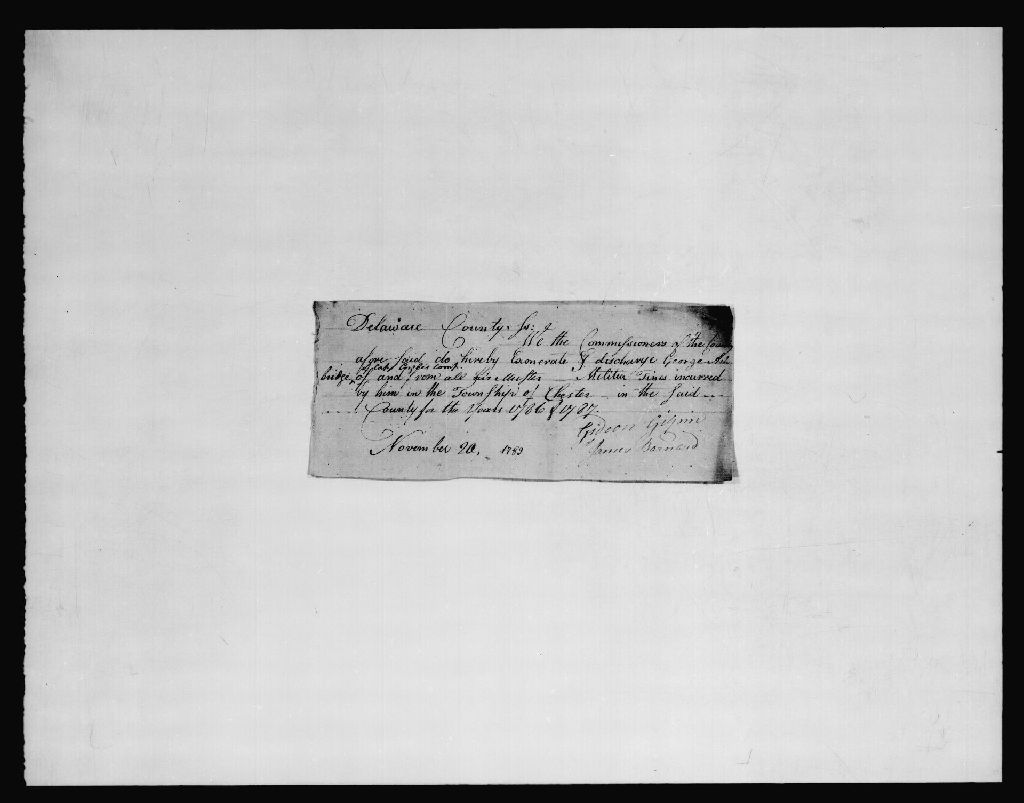 Delaware County, Ss: &
We the Commissioners of the Coun
afore said do hereby Exonerate & discharge George
of Capt Comp.
bridge of and from all his Muster Militia Fines incurred
by him in the Township of Chester in the Said
County for the Years 1786 & 1787.
Gideon Gilpin
November 20, 1789
James Barnard